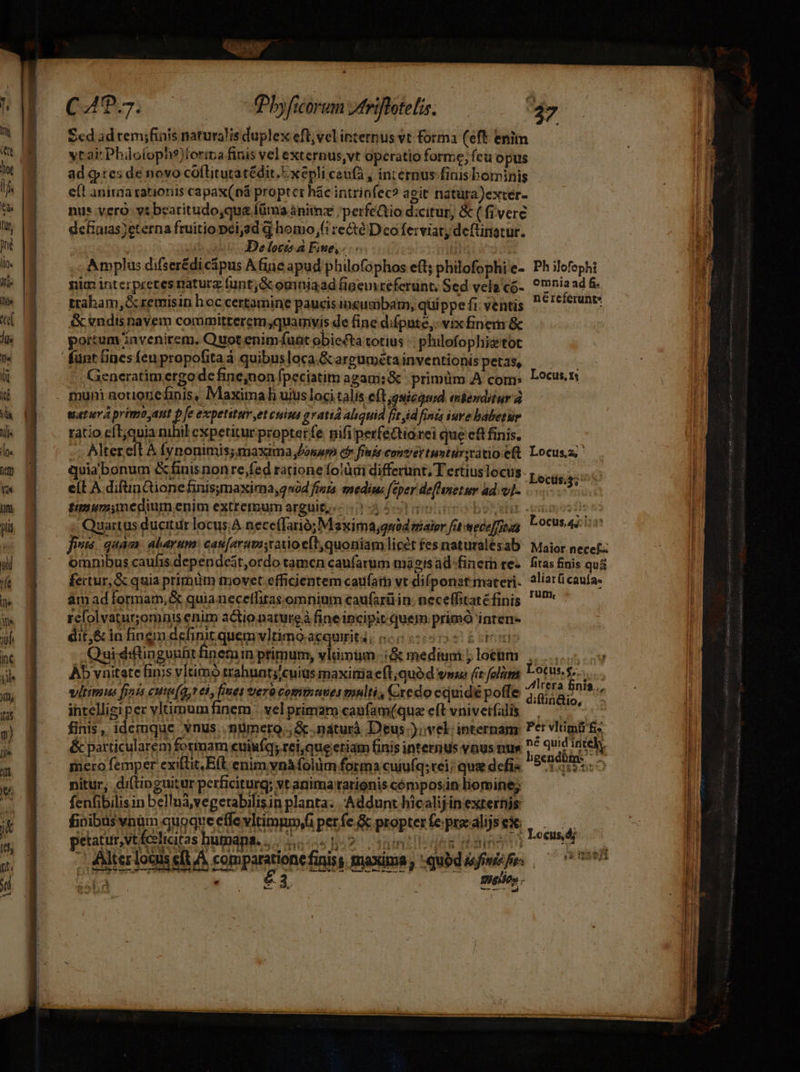 CAP.7. Physicorum Aristotelis. 37
Sed ad rem; finis naturalis duplex est, vel internus vt forma (est enim
vt ait Philosophꝰ) forma finis vel externus, vt operatio forme; seu opus
ad res de novo cōstitutat
est anima rationis capax (nā propter hāc intrinsecꝰ agit natura) exter-
nus vero vt beatitudo, quæ sūma animæ perfectio dicitur, & ( si vere
definias) eterna fruitio Dei, ad q̄ homo, si recté Deo serviat, destinatur.
De locis à Fine,
Amplus disserēdi cāpus A fine apud philosophos est; philosophi e-
nim interpretes naturæ sunt, & omnia ad finem referunt. Sed vela cō-
traham, & remis in hoc certamine paucis incumbam, quippe si ventis
& vndis navem committerem, quamvis de fine dispute, vix finem &
portum invenirem. Quot enim sunt obiecta totius philosophiæ tot
sunt fines seu proposita à quibus loca & argumēta inventionis petas,
Generatim ergo de fine, non speciatim agam; & primùm A com-
muni notione finis, Maxima huius loci talis est, quicquid intenditur à
naturá primo, aut p se expetitur, et cuius gratiâ aliquid fit, id finis iure habetur
ratio est, quia nihil expetitur propter se nisi perfectio rei que est finis.
Alter est A synonimis; maxima, bonum & finis convertuntur; ratio est
quia bonum & finis non re, sed ratione solùm differunt. Tertius locus
est A distinctione finis; maxima, quod finis medius semper destinetur ad vl-
timum; medium enim extremum arguit.
Quartus ducitur locus A necessario; Maxima, quòd maior sit necessitas
finis quàm aliarum causarum; ratio est, quoniam licèt res naturales ab
omnibus causis dependeāt, ordo tamen causarum magis ad finem re-
fertur, & quia primùm movet efficientem causam vt disponat materi-
am ad formam, & quia necessitas omnium causarū in necessitatē finis
resolvatur; omnis enim actio natureà fine incipit quem primò inten-
dit, & in finem definit quem vltimo acquirit.
Qui distinguunt finem in primum, vltimum & medium; locum
Ab vnitate finis vltimò trahunt; cuius maxima est, quòd vnus sit solùm
vltimus finis cuiusq, rei, fines verò communes multi, Credo equidē posse
intelligi per vltimum finem vel primam causam (quæ est vniversalis
finis, idemque vnus numero, & naturâ Deus) vel internam
& particularem formam cuiusq; rei, que etiam finis internus vnus nu-
mero semper existit. Est enim vnà solùm forma cuiusq; rei; quæ defi-
nitur, distinguitur perficiturq; vt anima rationis compos in homine,
sensibilis in belluâ, vegetabilis in planta. Addunt hic alij in externis
finibus vnùm quoque esse vltimum, si per se & propter se præ alijs ex-
petatur, vt fœlicitas humana.
Alter locus est A comparatione finis; maxima, quòd is finis sit
E 3 melior
Philosophi
omnia ad fi-
nē referunt.
Locus, 1;
Locus, 2,
Locus. 3;
Locus, 4;
Maior neces-
sitas finis quā
aliarū causa-
rum,
Locus, 5.
Altera finis
distinctio,
Per vltimū fi-
nē quid intel-
ligendum.
Locus, 6;